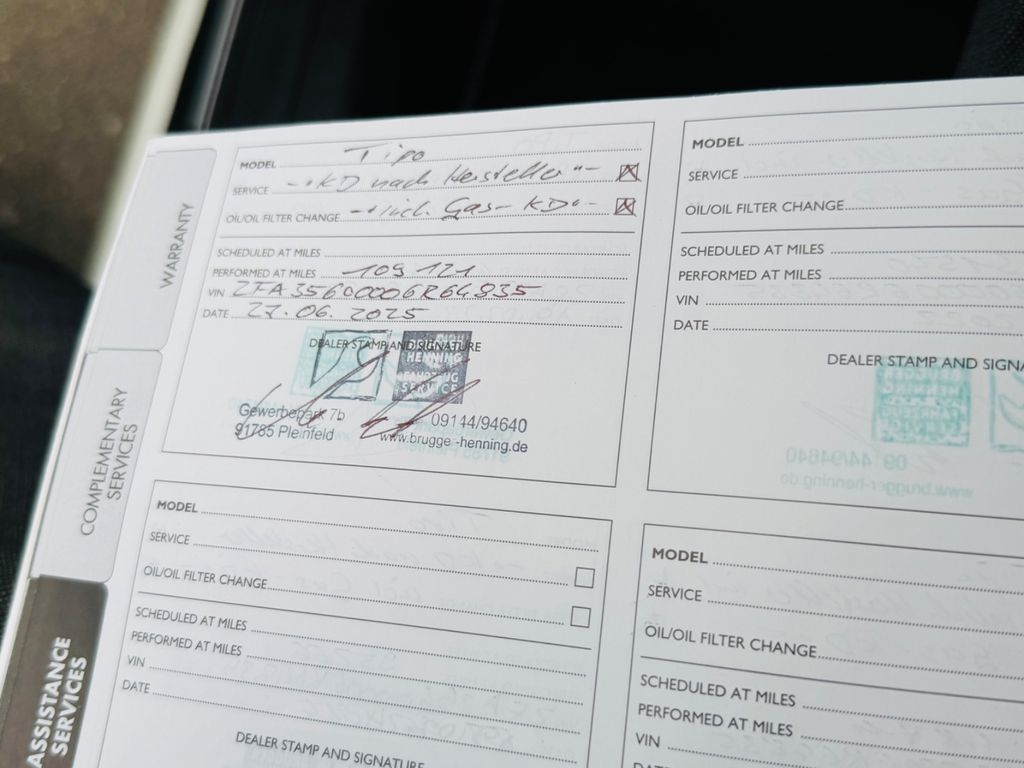 WARRANTY
COMPLEMENTARY
SERVICES
ASSISTANCE
SERVICES
MODEL Tipo
SERVICE -"KD nach Hersteller"-
OIL/OIL FILTER CHANGE -" Gas-KD"-
SCHEDULED AT MILES
PERFORMED AT MILES 109 121
VIN ZFA35600006R64935
DATE 27.06.2025
DEALER STAMP AND SIGNATURE
HENNING
FAHRZEUG
SERVICE
Gewerbepark 7b 09144/94640
91785 Pleinfeld www.brugge-henning.de
MODEL
SERVICE
OIL/OIL FILTER CHANGE
SCHEDULED AT MILES
PERFORMED AT MILES
VIN
DATE
DEALER STAMP AND SIGNA
MODEL
SERVICE
OIL/OIL FILTER CHANGE
SCHEDULED AT MILES
PERFORMED AT MILES
VIN
DATE
DEALER STAMP AND SIGNATURE
MODEL
SERVICE
OIL/OIL FILTER CHANGE
SCHEDULED AT MILES
PERFORMED AT MILES
VIN